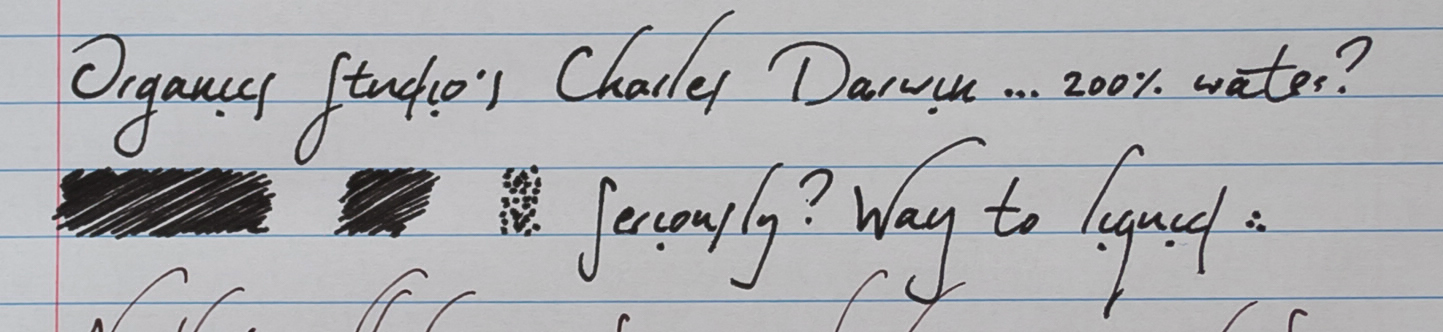 Organics Studio's Charles Darwin ... 200% water?
Seriously? Way to liquid :.